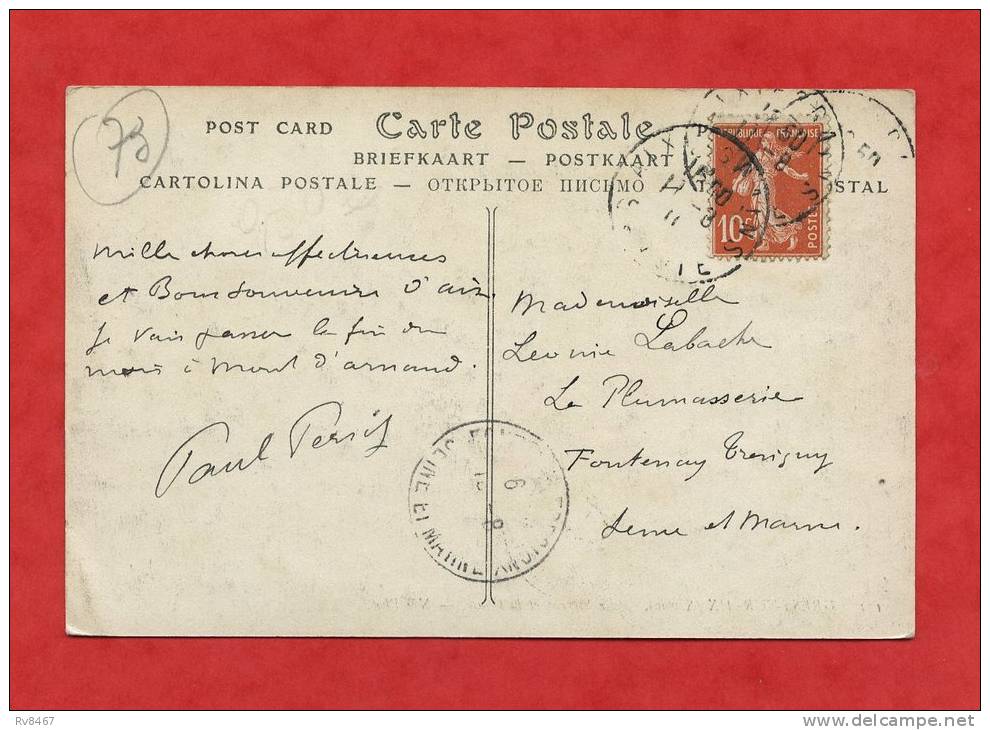 73
POST CARD Carte Postale
BRIEFKAART — POSTKAART
CARTOLINA POSTALE — ОТКРЫТОЕ ПИСЬМО
STAL
REPUBLIQUE FRANÇAISE
10c
POSTES
Mille choses affectueuses
et Bons souvenirs d'aix.
Je vais passer la fin du
mois à Mont d'arnaud.
Paul
Mademoiselle
Leonie Labache
La Plumasserie
Fontenay Tresigny
Seine et Marne.
SEINE ET MARNE
Rv8467
delcampe.net